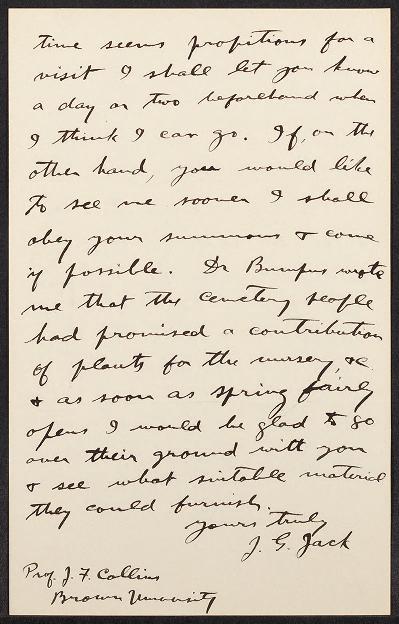 time seems propitious for a
visit I shall let you know
a day or two beforehand when
I think I can go. If, on the
other hand, you would like
to see me sooner I shall
obey your summons & come
if possible. Dr Bumpus wrote
me that the cemetery people
had promised a contribution
of plants for the nursery, &c.
& as soon as spring fairly
opens I would be glad to go
over their ground with you
& see what suitable material
they could furnish.
yours truly
J. G. Jack
Prof. J. F. Collins
Brown University